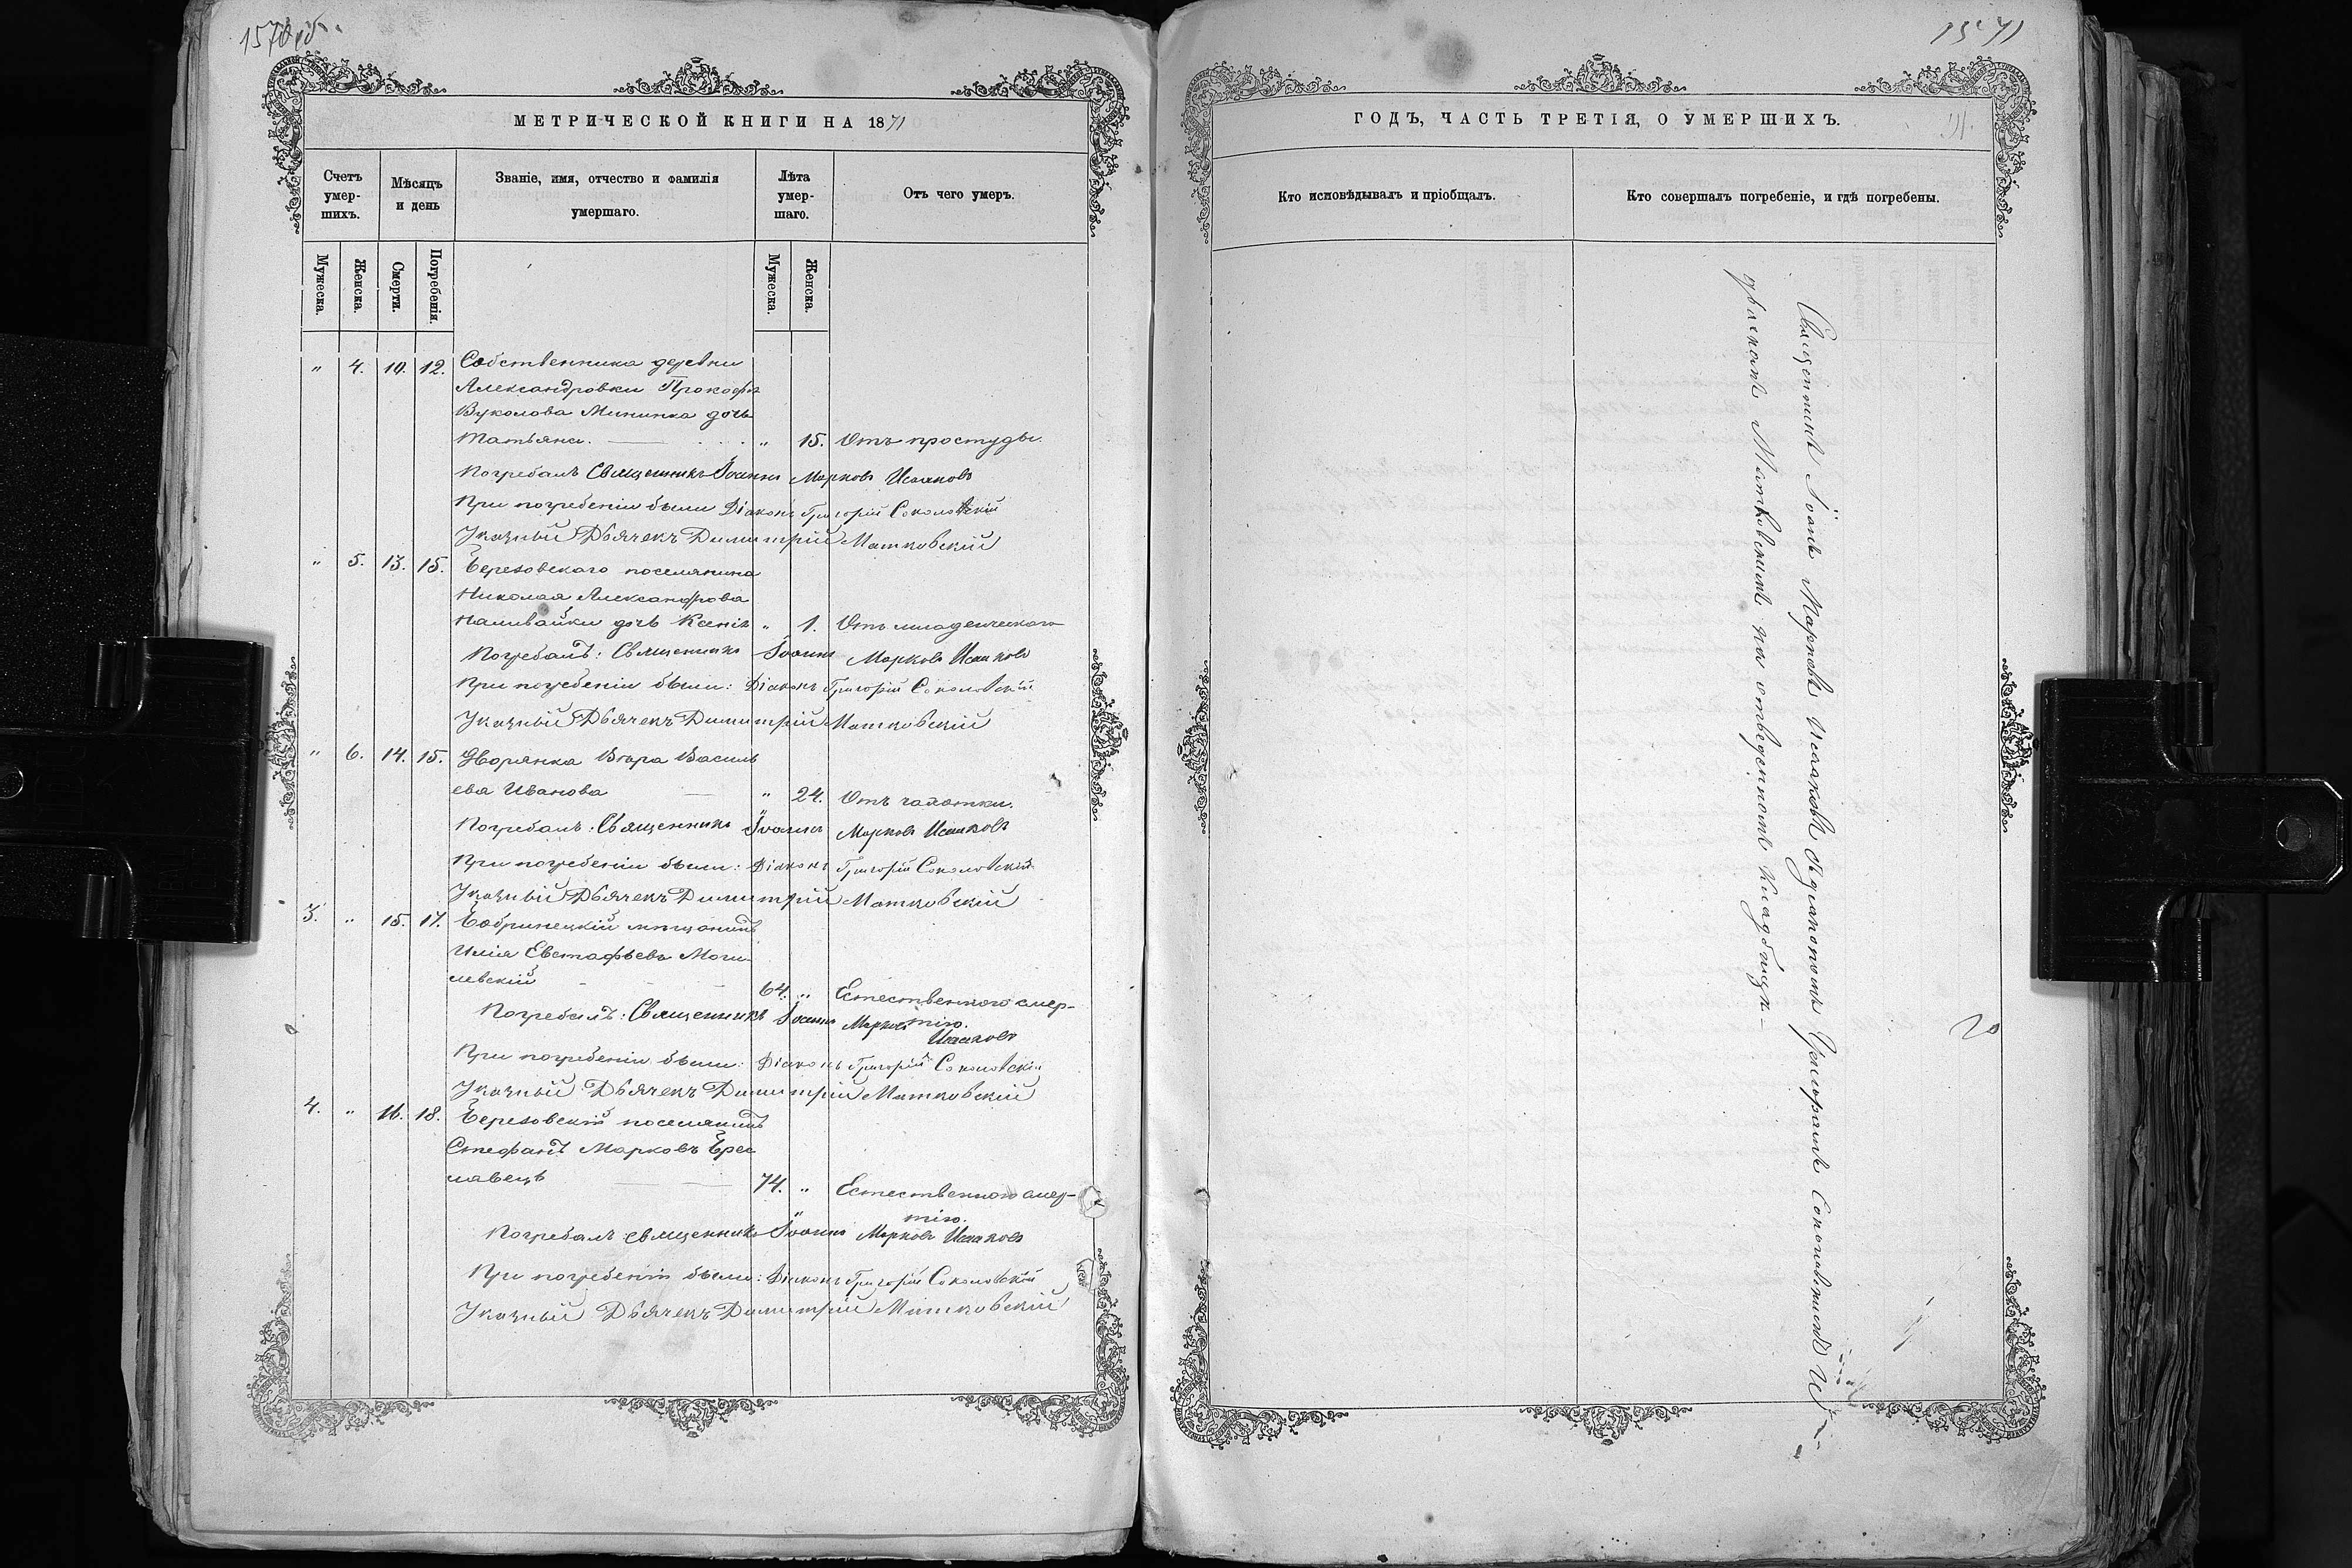 1570 об.
МЕТРИЧЕСКОЙ КНИГИ НА 1871
Счетъ умер-шихъ.
Мѣсяцъ и день
Званіе, имя, отчество и фамилія умершаго.
Лѣта умер-шаго.
Отъ чего умеръ.
Мужеска.
Женска.
Смерти.
Погребенія.
Мужеска.
Женска.
" 4. 10. 12. Собственника деревни
Александровки Прокофія
Вуколова Мининка дочь
Татьяна. " 15. Отъ простуды.
Погребалъ Священникъ Іоаннъ Марковъ Исаковъ
При погребеніи были Діаконъ Григорій Соколовскій
Указный Дьячекъ Димитрій Матковскій
" 5. 13. 15. Березовскаго поселянина
Николая Александрова
Наливайки дочь Ксенія " 1. Отъ младенческаго
Погребалъ: Священникъ Іоаннъ Марковъ Исаковъ
При погребеніи были: Діаконъ Григорій Соколовскій
Указный Дьячекъ Димитрій Матковскій
" 6. 14. 15. Дворянка Вѣра Василь
ева Иванова " 24. Отъ чахотки.
Погребалъ: Священникъ Іоаннъ Марковъ Исаковъ
При погребеніи были: Діаконъ Григорій Соколовскій
Указный Дьячекъ Димитрій Матковскій
3. " 15. 17. Бобринецкій мѣщанинъ
Илія Евстафьевъ Моги
левскій 64. " Естественного смер-
тію.
Погребалъ: Священникъ Іоаннъ Марковъ
Исаковъ
При погребеніи были: Діаконъ Григорій Соколовскій
Указный Дьячекъ Димитрій Матковскій
4. " 16. 18. Березовскій поселянинъ
Стефанъ Марковъ Брес
лавецъ 74. " Естественного смер-
тію.
Погребалъ священникъ Іоаннъ Марковъ Исаковъ
При погребеніи были: Діаконъ Григорій Соколовскій
Указный Дьячекъ Димитрій Матковскій
1571
ГОДЪ, ЧАСТЬ ТРЕТІЯ, О УМЕРШИХЪ.
Кто исповѣдывалъ и пріобщалъ.
Кто совершалъ погребеніе, и гдѣ погребены.
Священникъ Іоаннъ Марковъ Исаковъ съ діакономъ Григоріемъ Соколовскимъ и
Матковскимъ на отведенномъ кладбищѣ